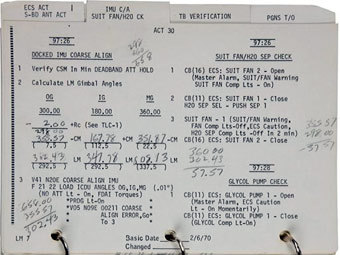 ECS ACT
S-BD ANT ACT
IMU C/A
SUIT FAN/H2O CK
TB VERIFICATION
PGNS T/O
ACT 30
97:26
DOCKED IMU COARSE ALIGN
1 Verify CSM In Min DEADBAND ATT HOLD
2 Calculate LM Gimbal Angles
OG IG MG
300.00 180.00 360.00
-2.00 +Rc (See TLC-1)
298.00
355.57 -CM 167.78 -CM 351.87 -CM
(7.5) (112.5) (22.5)
302.43 LM 347.78 LM 08.13 LM
(292.5) (292.5) (337.5)
3 V41 N20E COARSE ALIGN IMU
F 21 22 LOAD ICDU ANGLES OG,IG,MG (.01°)
(NO ATT Lt - On, FDAI Torques)
*PROG Lt-On *
*V05 N09E 00211 COARSE *
* ALIGN ERROR,Go*
* To 3 *
658.00
355.57
302.43
97:26
SUIT FAN/H2O SEP CHECK
1 CB(16) ECS: SUIT FAN 2 - Open
(Master Alarm, SUIT/FAN Warning
SUIT FAN Comp Lts - On)
2 CB(11) ECS: SUIT FAN 1 - Close
H2O SEP SEL - PUSH SEP 1
3 SUIT FAN - 1 (SUIT/FAN Warning,
FAN Comp Lt-Off,ECS Caution,
H2O SEP Comp Lts -Off In 2 min)
355.57
298.00
57.57
360.00
302.43
57.57
97:28
GLYCOL PUMP CHECK
1 CB(11) ECS: GLYCOL PUMP 1 - Open
(Master Alarm, ECS Caution
Lt - On Momentarily)
CB(11) ECS: GLYCOL PUMP 1 - Close
(GLYCOL Comp Lt-On)
LM 7
Basic Date 2/6/70
Changed